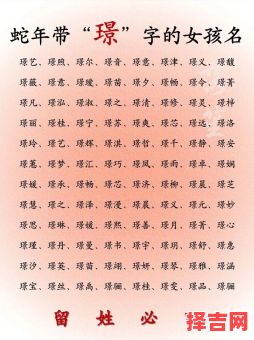 蛇年带“璟”字的女孩名
璟艺、璟熙、璟尔、璟音、璟意、璟津、璟义、璟馥
璟薇、璟意、璟瑷、璟苗、璟夕、璟畅、璟令、璟菁
璟凡、璟泓、璟淑、璟之、璟清、璟修、璟灵、璟梓
璟丽、璟桂、璟宁、璟苏、璟爽、璟芯、璟远、璟洛
璟玲、璟艺、璟辉、璟淇、璟哲、璟千、璟静、璟安
璟蕙、璟梦、璟汇、璟巧、璟凤、璟雨、璟卓、璟娴
璟媛、璟承、璟畅、璟芯、璟济、璟柳、璟晨、璟芝
璟慧、璟梓、璟露、璟济、璟晨、璟义、璟元、璟妙
璟思、璟琳、璟媛、璟熙、璟善、璟月、璟菁、璟心
璟瑾、璟丹、璟曼、璟书、璟宇、璟玥、璟舒、璟惠
璟汐、璟英、璟苗、璟翊、璟妍、璟琴、璟雅、璟涵
璟宝、璟丝、璟禹、璟骊、璟桂、璟雯、璟品、璟骊
留姓必
择吉网